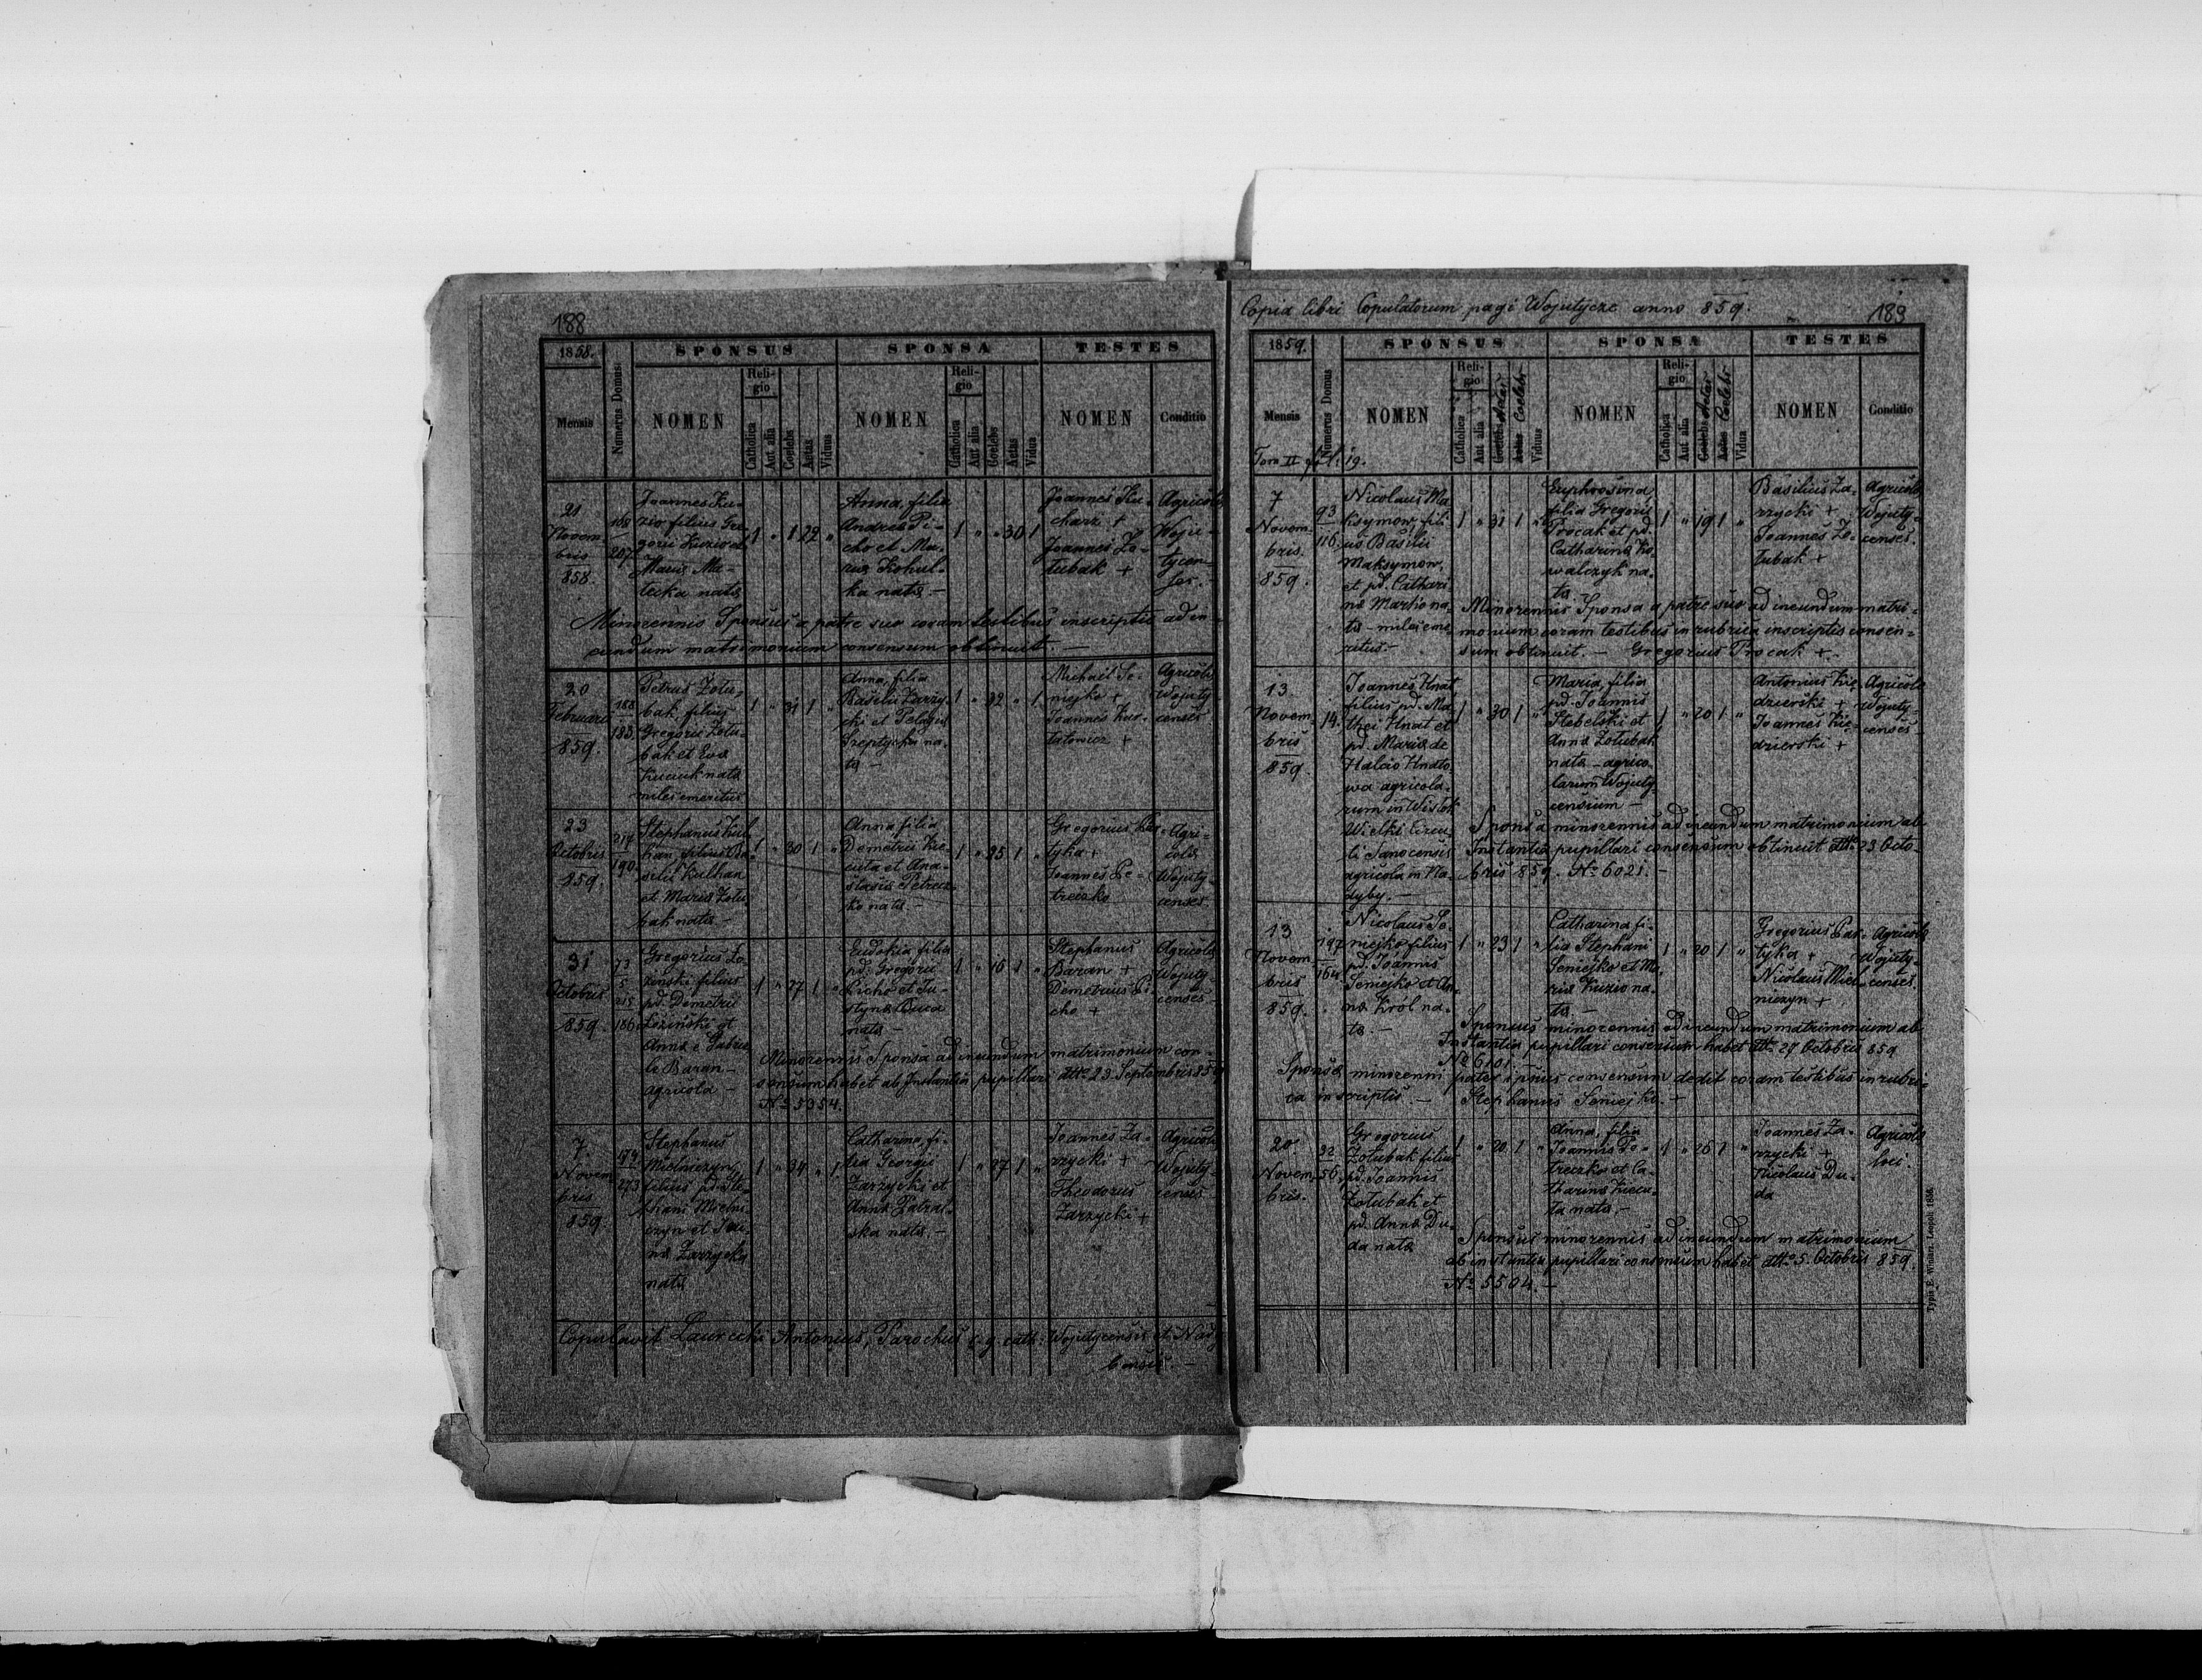 188
1858.
SPONSUS SPONSA TESTES
Mensis Numerus Domus NOMEN Religio Catholica Aut alia Coelebs Aetas Viduus NOMEN Religio Catholica Aut alia Coelebs Aetas Vidua NOMEN Conditio
21
Novem
bris
858.
168
207
Joannes Ku-
zio filius Gre-
gorii Kuzio et
Maria Ma-
tecka nata
1 " 1 22 "
Anna, filia
Andrea Pi-
cho et Ma-
ria Kohul-
ka nata -
1 " " 30 1
Joannes Ku-
charz +
Joannes Zo-
tubak +
Agricola
Woju-
tycen-
ses.-
Minorennis Sponsus a patre suo coram testibus inscriptis ad in-
eundum matrimonium consensum obtinuit. -
20
Februarii
859.
188
183
Petrus Zotu-
bak, filius
Gregorii Zotu-
bak et Eva
nata
miles emeritus
1 " 31 1 "
Anna, filia
Basilii Zarzy-
cki et Pelagia
Szeptycka na-
ta -
1 " 32 " 1
Michael Se-
niejko +
Joannes
+
Agricola
Wojuty-
censes
23
Octobris
859.
217
190
Stephanus Kul-
han filius Ba-
silii Kulhan
et Maria Zotu-
bak nata -
1 " 30 1 "
Anna filia
Demetrii Kie-
cuta et Ana-
stasia Petrecz-
ko nata. -
1 " 25 1 "
Gregorius Par-
tyka +
Joannes Pe-
treczko
Agri-
cola
Wojuty-
censes.
31
Octobris
859.
73
5
215
186
Gregorius Lo-
zinski filius
pd. Demetrii
Lozinski et
Anna e Gabrie-
le Baran -
agricola -
1 " 27 1 "
Eudokia filia
pd. Gregorii
Picho et Ju-
styna Duca
nata -
1 " 16 1 "
Stephanus
Baran +
Demetrius Pi-
cho +
Agricola
Wojuty-
censes
Minorennis Sponsa ad ineundum matrimonium con-
sensum habet ab Instantia pupillari dtto 23 Septembris 859
No 5354.
7.
Novem
bris
859.
179
273
Stephanus
Mielniczyn,
filius pd. Ste-
phani Mielni-
czyn et
na Zarzycka
nata
1 " 34 " 1
Catharina, fi-
lia Georgii
Zarzycki et
Anna
ska nata -
1 " 27 1 "
Joannes Za-
rzycki +
Theodorus
Zarzycki +
Agricola
Wojuty-
censes
Copulavit Antonius, Parochus r. g. cath: Wojutycensis et Nady-
bensis. -
Copia libri Copulatorum pagi Wojutycze anno 859.
189
1859.
SPONSUS SPONSA TESTES
Mensis Numerus Domus NOMEN Religio Catholica Aut alia Coelebs Aetas Aetas Coelebs Viduus NOMEN Religio Catholica Aut alia Coelebs Aetas Aetas Coelebs Vidua NOMEN Conditio
Tom II 19.
7
Novem
bris.
859.
93
116
Nicolaus Ma-
ksymow, fili-
us Basilii
Maksymow
et pd. Cathari-
na Martio na-
ta - miles eme-
ritus -
1 " 31 1 "
Euphrosina,
filia Gregorii
Procak et pd.
Catharina Ko-
walczyk na-
ta -
1 " 19 1 "
Basilius Za-
rzycki +
Joannes Zo-
tubak +
Agricola
Wojuty-
censes.
Minorennis Sponsa a patre suo ad ineundum matri-
monium coram testibus in rubrica inscriptis consen-
sum obtinuit. - Gregorius Procak +.
13
Novem
bris
859.
14.
Joannes Hnat
filius pd. Ma-
thei Hnat et
pd. Maria de
Halcio Hnato-
wa agricola-
rum in Wislok
Wielki Circu-
li Sanocensis
agricola in Na-
dyby. -
1 " 30 1 "
Maria, filia
pd. Joannis
Stebelski et
Anna Zotubak
nata - agrico-
larum Wojuty-
censium -
1 " 20 1 "
Antonius Kie-
dzierski +
Joannes Kie-
dzierski +
Agricola
Wojuty-
censes
Sponsa minorennis ad ineundum matrimonium ab
Instantia pupillari consensum obtinuit dtto 23 Octo-
bris 859. No 6021. -
13
Novem
bris
859.
197
164
Nicolaus Se-
niejko filius
pd. Joannis
Seniejko et An-
na Król na-
ta. -
1 " 23 1 "
Catharina fi-
lia Stephani
Seniejko et Ma-
ria Kuzio na-
ta. -
1 " 20 1 "
Gregorius Par-
tyka +
Nicolaus Miel-
niczyn +
Agricola
Wojuty-
censes.
Sponsus minorennis ad ineundum matrimonium ab
Instantia pupillari consensum habet dtto 27 Octobris 859
No 6101.
Sponsa minorenni pater ipsius consensum dedit coram testibus in rubri-
ca inscriptis. - Stephanus Seniejko. +
20
Novem
bris.
32
56
Gregorius
Zotubak filius
pd. Joannis
Zotubak et
pd. Anna Du-
da nata
1 " 20 1 "
Anna, filia
Joannis Pe-
treczko et Ca-
tharina Kiecu-
ta nata. -
1 " 26 1 "
Joannes Za-
rzycki +
Nicolaus Du-
da
Agricola
loci.
Sponsus minorennis ad ineundum matrimonium
ab instantia pupillari consensum habet dtto 5. Octobris 859.
No 5504. -
Typis E. Winiarz. Leopoli 1856.